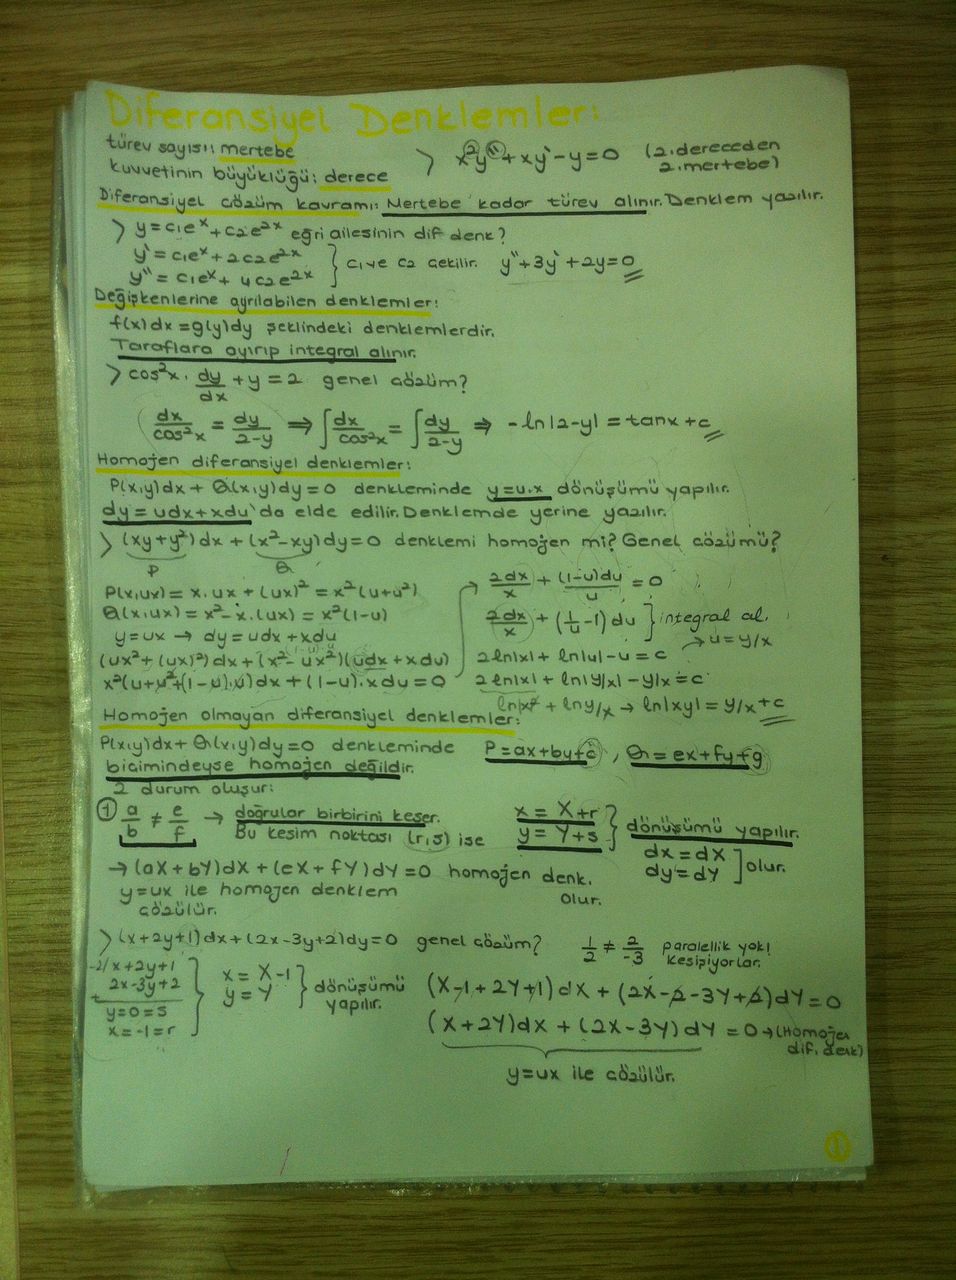 Diferansiyel Denklemler:
türev sayısı: mertebe
kuvvetinin büyüklüğü: derece
> x²y'' + xy' - y = 0 (2. dereceden
2. mertebe)
Diferansiyel çözüm kavramı: Mertebe kadar türev alınır. Denklem yazılır.
> y = c₁eˣ + c₂e²ˣ eğri ailesinin dif denk?
y' = c₁eˣ + 2c₂e²ˣ
y'' = c₁eˣ + 4c₂e²ˣ } c₁ ve c₂ çekilir. y'' + 3y' + 2y = 0
Değişkenlerine ayrılabilen denklemler:
f(x)dx = g(y)dy şeklindeki denklemlerdir.
Taraflara ayırıp integral alınır.
> cos²x . dy/dx + y = 2 genel çözüm?
dx/cos²x = dy/2-y ⇒ ∫ dx/cos²x = ∫ dy/2-y ⇒ -ln|2-y| = tanx + c
Homojen diferansiyel denklemler:
P(x,y)dx + Q(x,y)dy = 0 denkleminde y = u.x dönüşümü yapılır.
dy = udx + xdu 'da elde edilir. Denklemde yerine yazılır.
> (xy+y²)dx + (x²-xy)dy = 0 denklemi homojen mi? Genel çözümü?
P Q
P(x,ux) = x.ux + (ux)² = x²(u+u²)
Q(x,ux) = x² - x.(ux) = x²(1-u)
y = ux → dy = udx + xdu
(ux² + (ux)²)dx + (x² - ux²)(udx + xdu)
x²(u+u²+(1-u).u)dx + (1-u).xdu = 0
2dx/x + (1-u)du/u = 0
2dx/x + (1/u - 1)du } integral al.
→ u = y/x
2ln|x| + ln|u| - u = c
2ln|x| + ln|y/x| - y/x = c
ln|x|² + ln y/x → ln|xy| = y/x + c
Homojen olmayan diferansiyel denklemler:
P(x,y)dx + Q(x,y)dy = 0 denkleminde P = ax+by+c , Q = ex+fy+g
biçimindeyse homojen değildir.
2 durum oluşur:
① a/b ≠ e/f → doğrular birbirini keser.
Bu kesim noktası (r,s) ise
x = X+r
y = Y+s } dönüşümü yapılır.
dx = dX
dy = dY ] olur.
→ (aX + bY)dX + (eX + fY)dY = 0 homojen denk.
olur.
y = ux ile homojen denklem
çözülür.
> (x+2y+1)dx + (2x-3y+2)dy = 0 genel çözüm? 1/2 ≠ 2/-3 paralellik yok!
kesişiyorlar.
-2/ x+2y+1
2x-3y+2
+
y = 0 = s
x = -1 = r
x = X-1
y = Y } dönüşümü
yapılır.
(X-1+2Y+1)dX + (2X-2-3Y+2)dY = 0
(X+2Y)dX + (2X-3Y)dY = 0 → (Homojen
dif. denk)
y = ux ile çözülür.
1